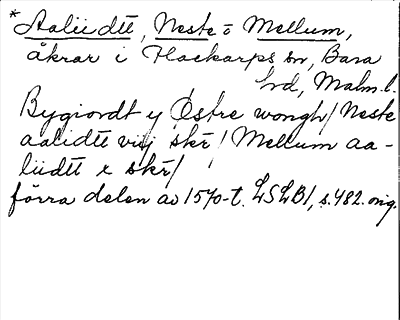 * Aaliidtt, Neste o Mellum,
åkrar i Flackarps sn, Bara
hd, Malm. l.
Bygiordt y Østre wongh / Neste
aalidtt viij skr / Mellum aa-
liidtt x skr /
förra delen av 1570-t. LSLB1, s. 482. orig.